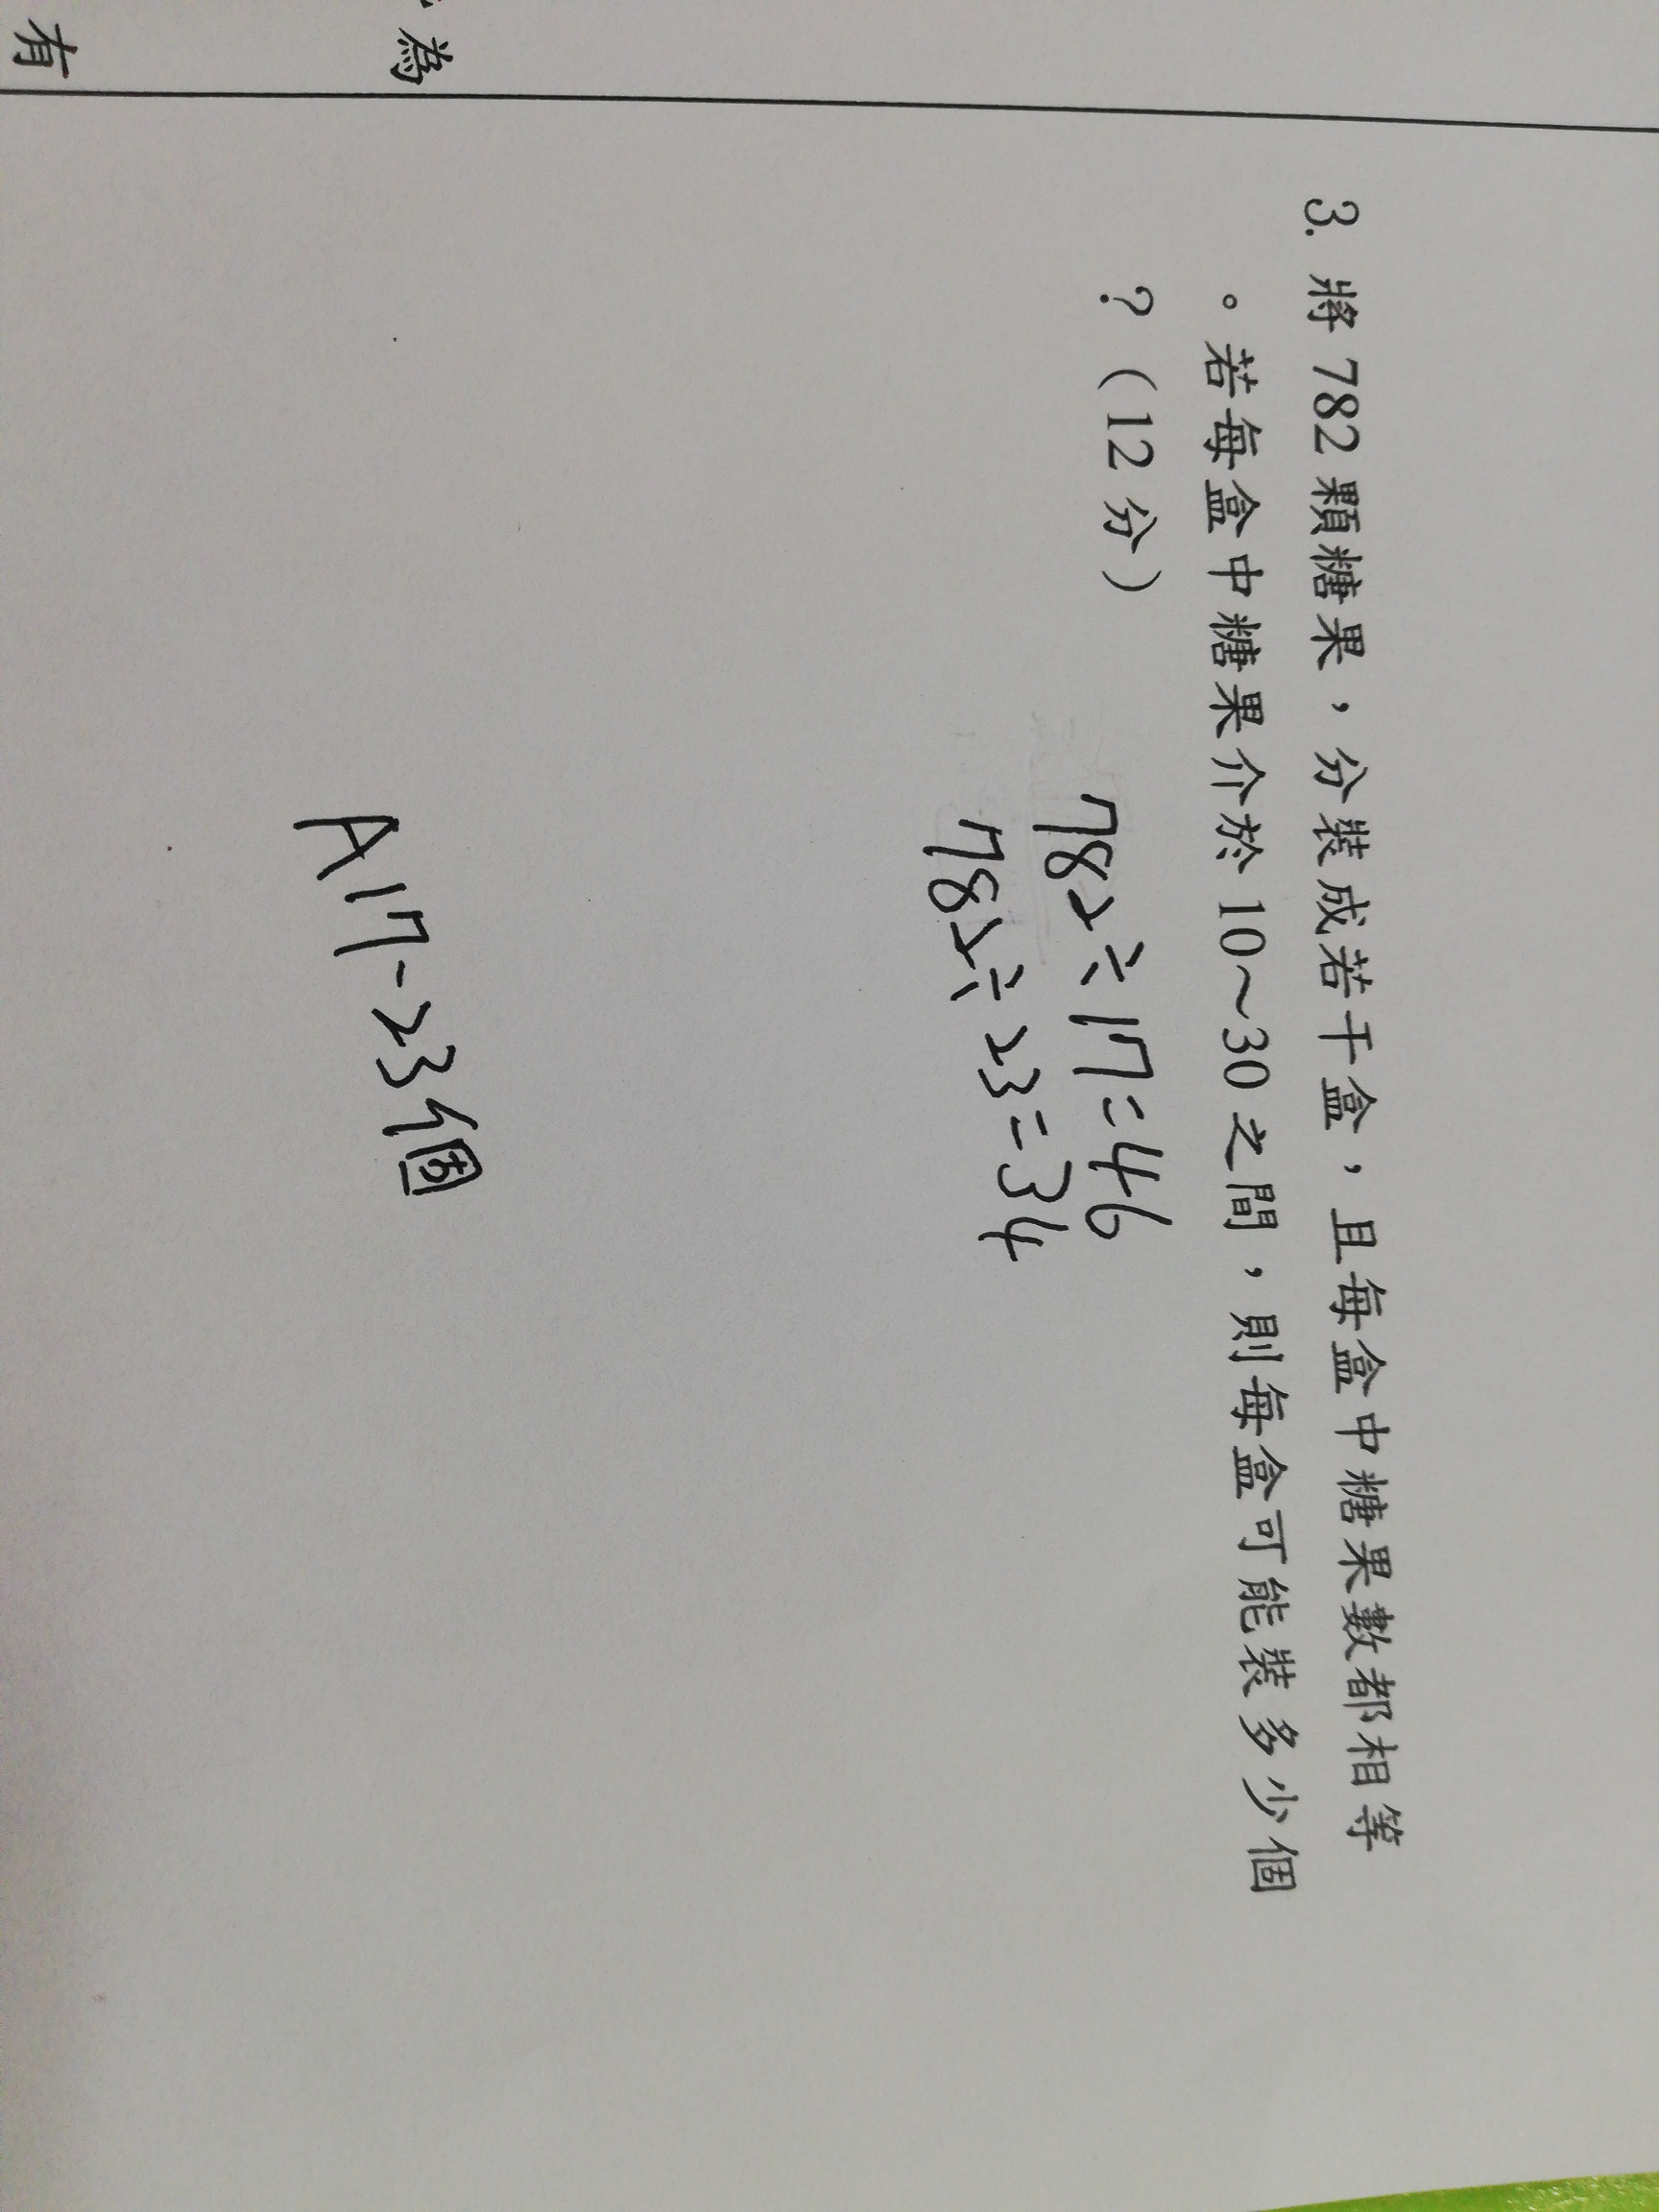 為
有
3. 將 782 顆糖果，分裝成若干盒，且每盒中糖果數都相等
。若每盒中糖果介於 10～30 之間，則每盒可能裝多少個
？（12 分）
782÷17=46
782÷23=34
A17-23個